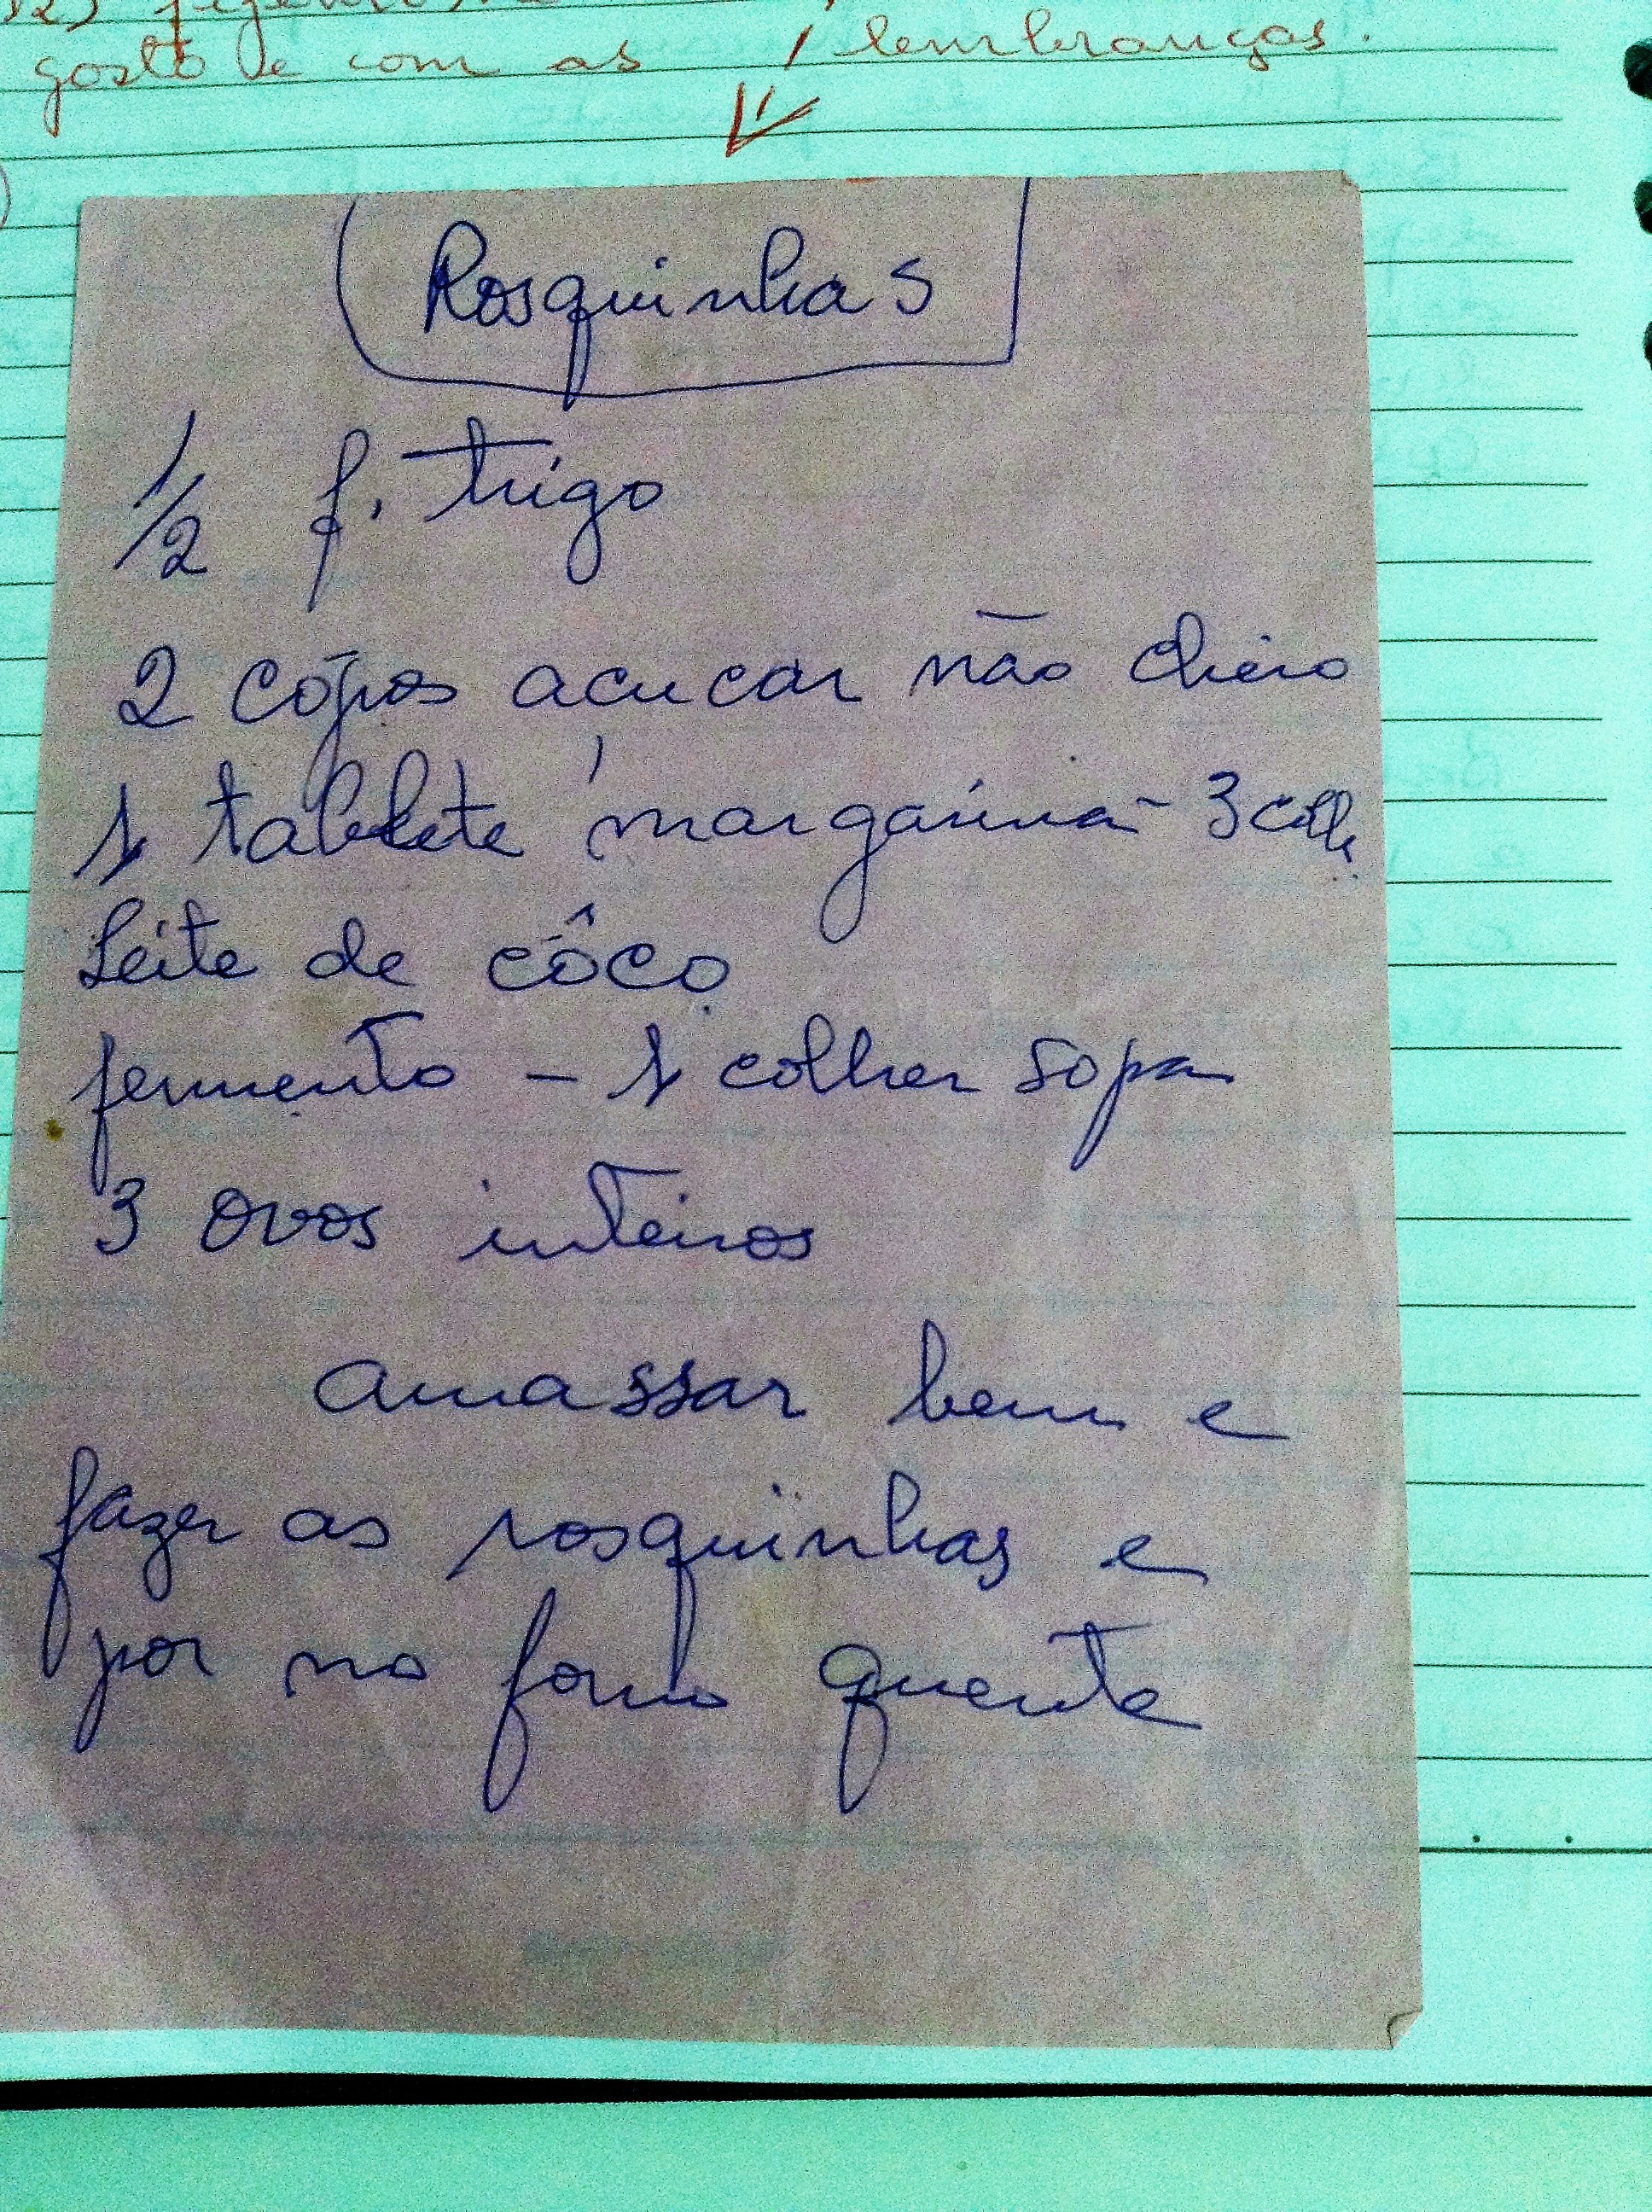 gosto e com as lembranças.
Rosquinhas
1/2 f. trigo
2 copos acucar não cheio
1 tablete margarina - 3 colh
Leite de côco
fermento - 1 colher sopa
3 ovos inteiros
amassar bem e
fazer as rosquinhas e
por no forno quente